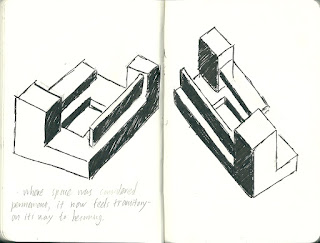 - where space was considered
permanent, it now feels transitory -
on its way to becoming.